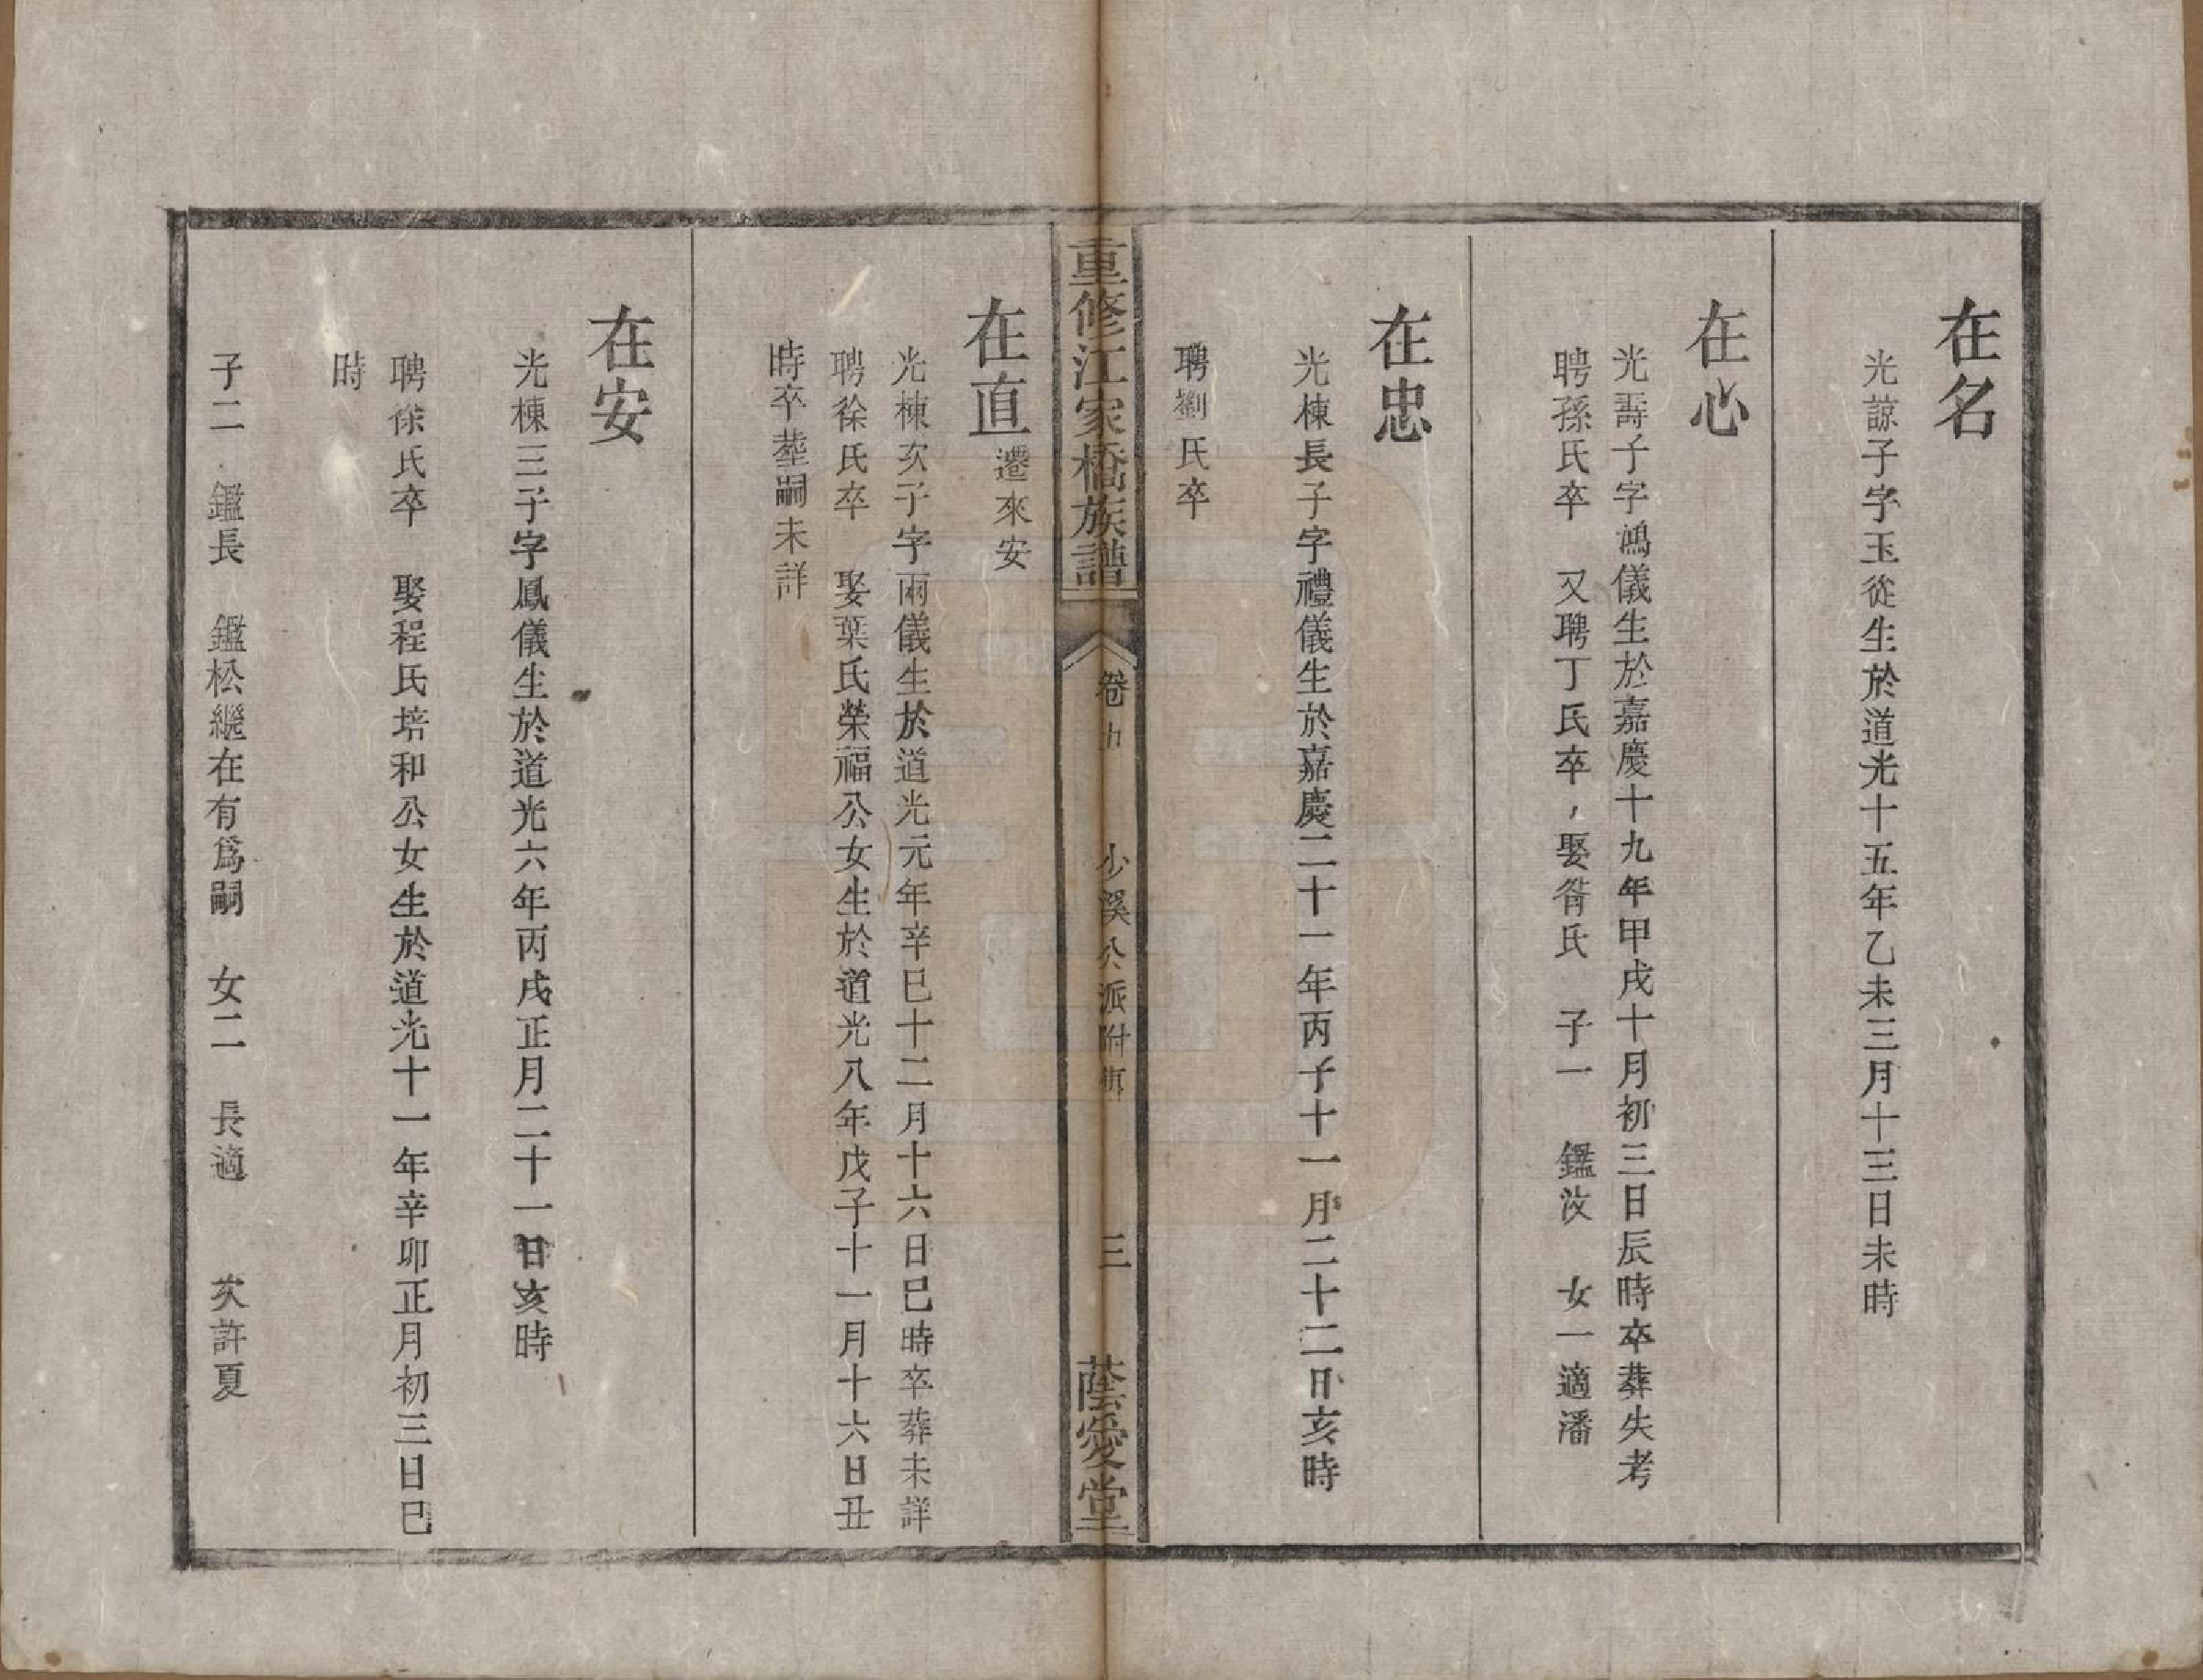 在名
光諒子字玉從生於道光十五年乙未三月十三日未時
在心
光壽子字鴻儀生於嘉慶十九年甲戌十月初三日辰時卒葬失考
聘孫氏卒　又聘丁氏卒　娶胥氏　子一　鑑汝　女一適潘
在忠
光棟長子字禮儀生於嘉慶二十一年丙子十一月二十二日亥時
聘劉氏卒
重修江家橋族譜　卷九　少溪公派附東　三　蔭愛堂
在直 遷來安
光棟次子字兩儀生於道光元年辛巳十二月十六日巳時卒葬未詳
聘徐氏卒　娶葉氏榮福公女生於道光八年戊子十一月十六日丑
時卒塟嗣未詳
在安
光棟三子字鳳儀生於道光六年丙戌正月二十一日亥時
聘徐氏卒　娶程氏培和公女生於道光十一年辛卯正月初三日巳
時
子二　鑑長　鑑松繼在有爲嗣　女二　長適　次許夏